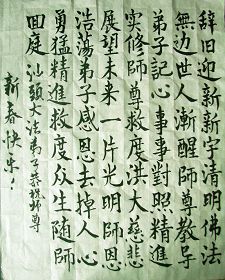 辞旧迎新新宇清明佛法
無边世人漸醒師尊教导
弟子記心事事對照精進
实修師尊救度洪大慈悲
展望未来一片光明師恩
浩蕩弟子感恩去掉人心
勇猛精進救度众生随師
回庭 汕頭大法弟子恭祝師尊
新春快乐！